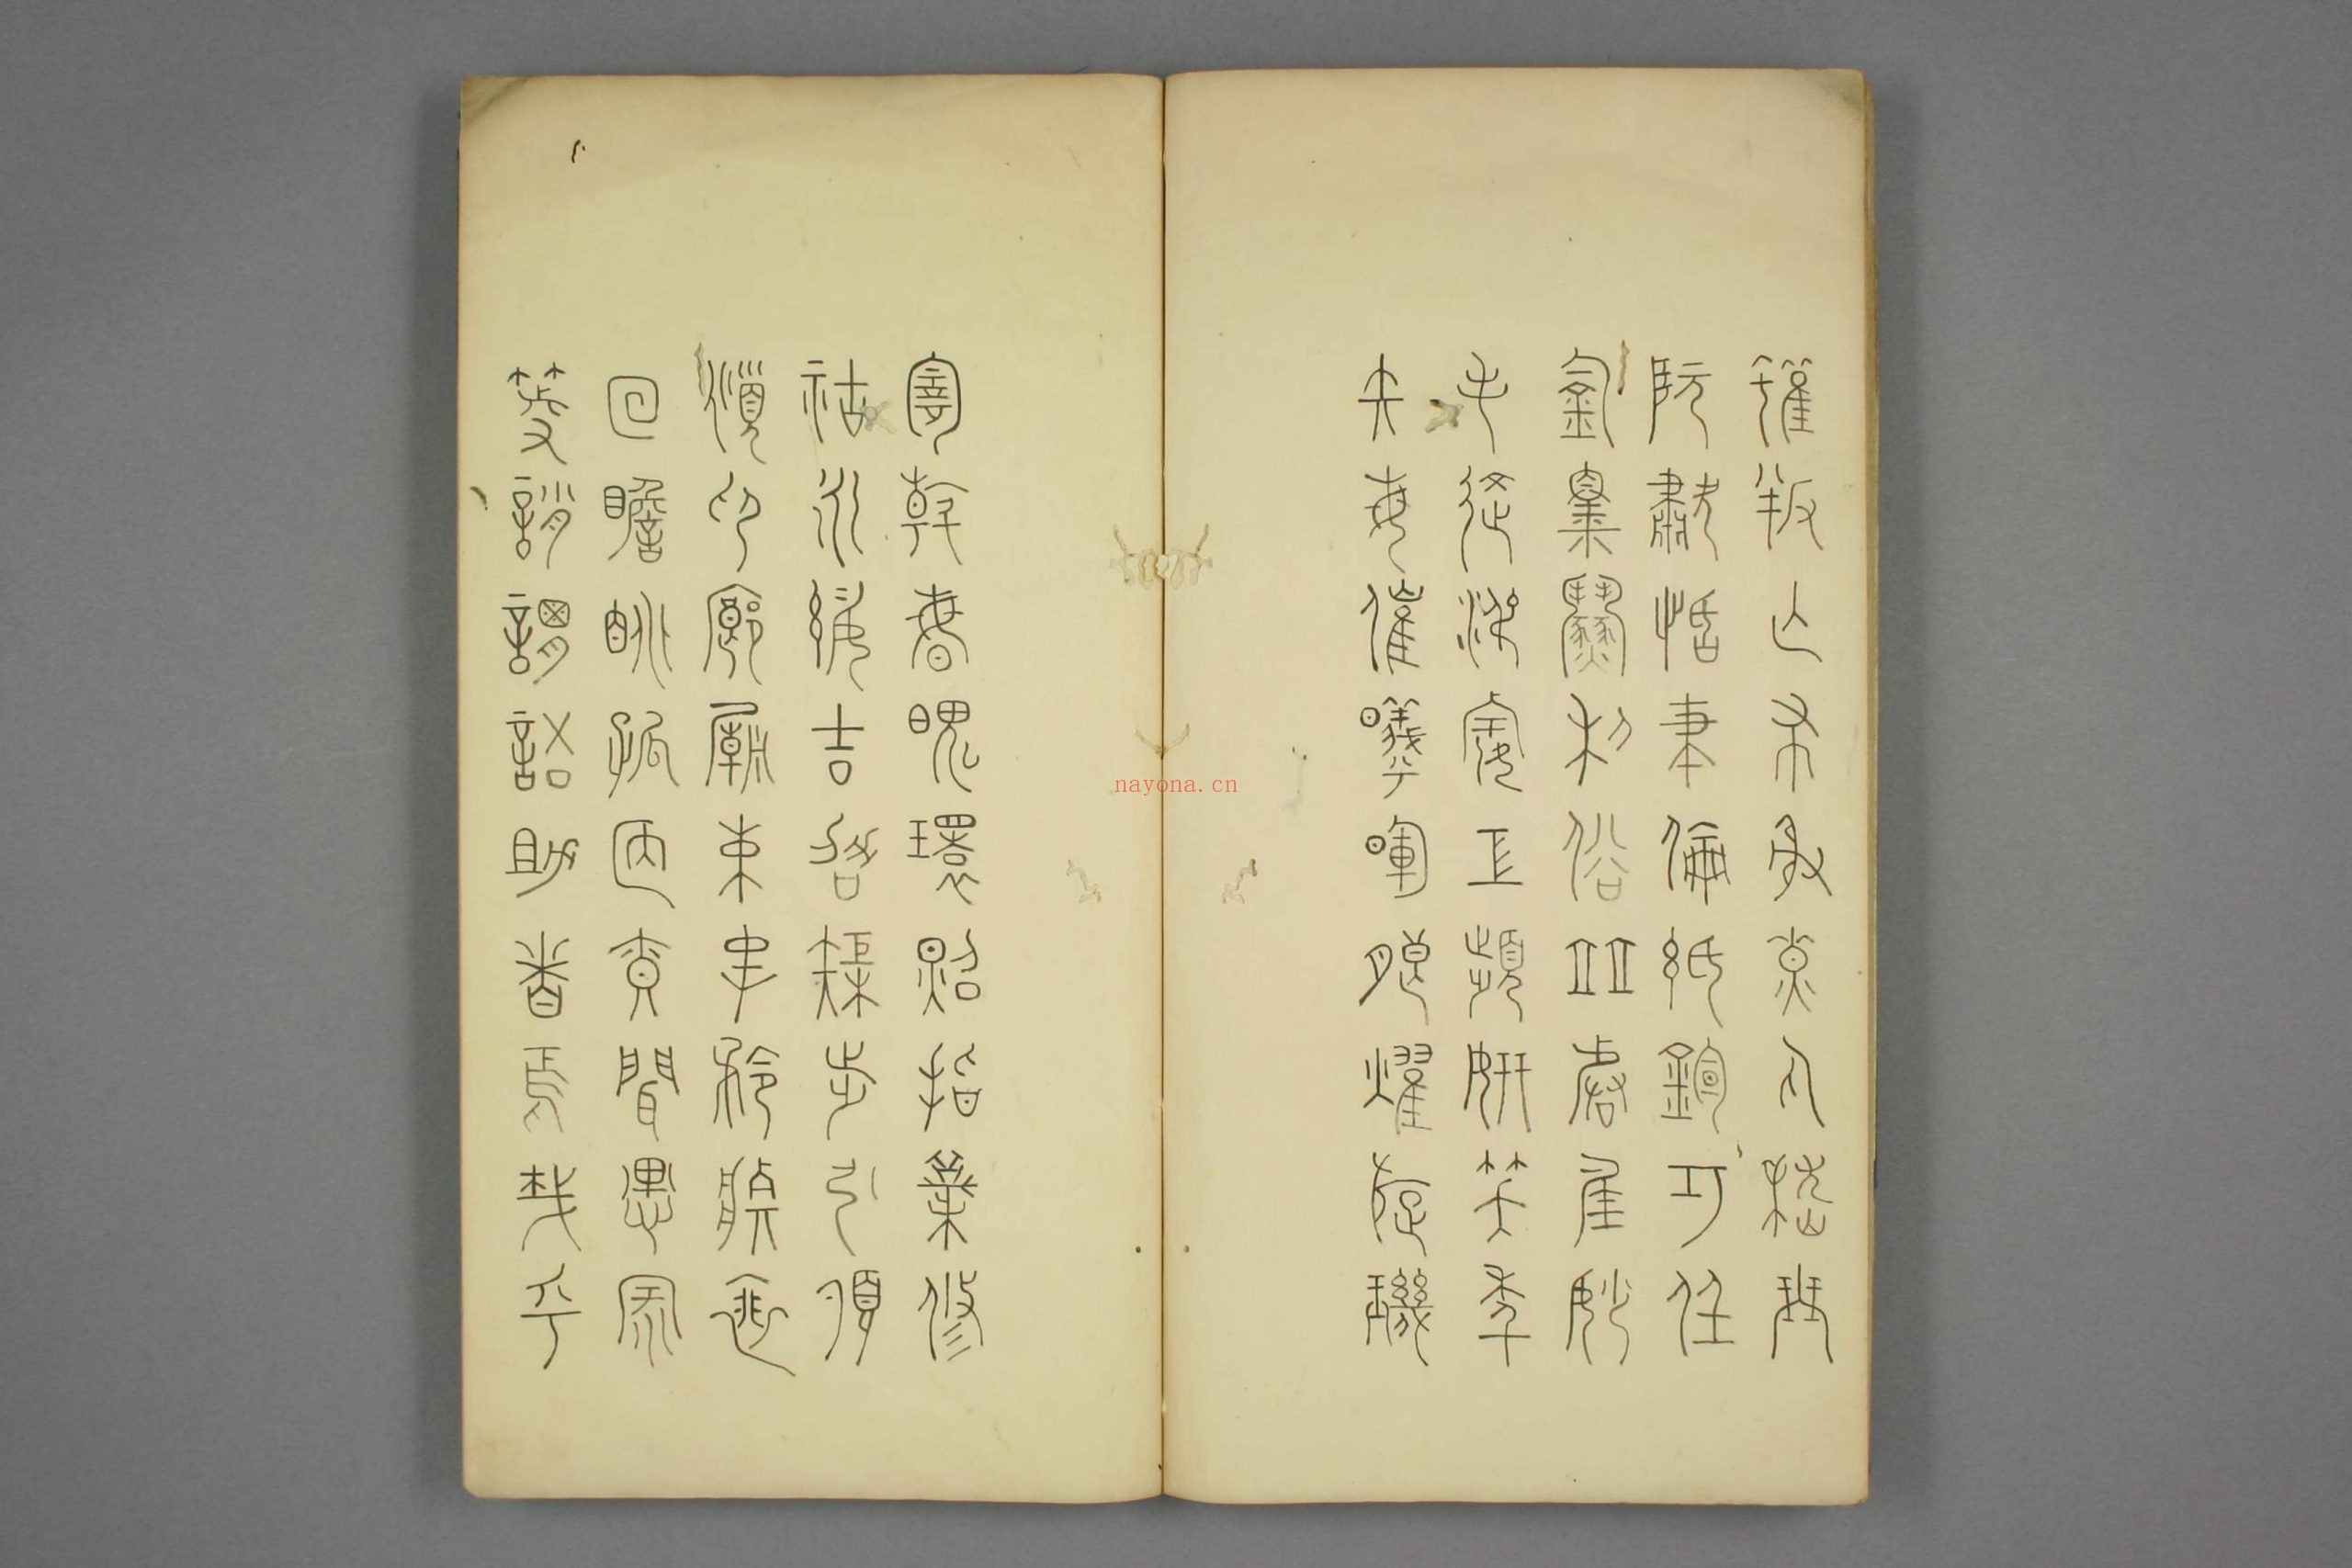 獲叛亡布射尞丸嵇琴
阮嘯恬筆倫紙鈞巧任
釣釋紛利俗並皆佳妙
毛施淑姿工顰妍笑年
矢每催曦暉朗曜旋璣
懸斡晦魄環照指薪修
祜永綏吉劭矩步引領
俯仰廊廟束帶矜莊徘
徊瞻眺孤陋寡聞愚蒙
等誚謂語助者焉哉乎
nayona.cn